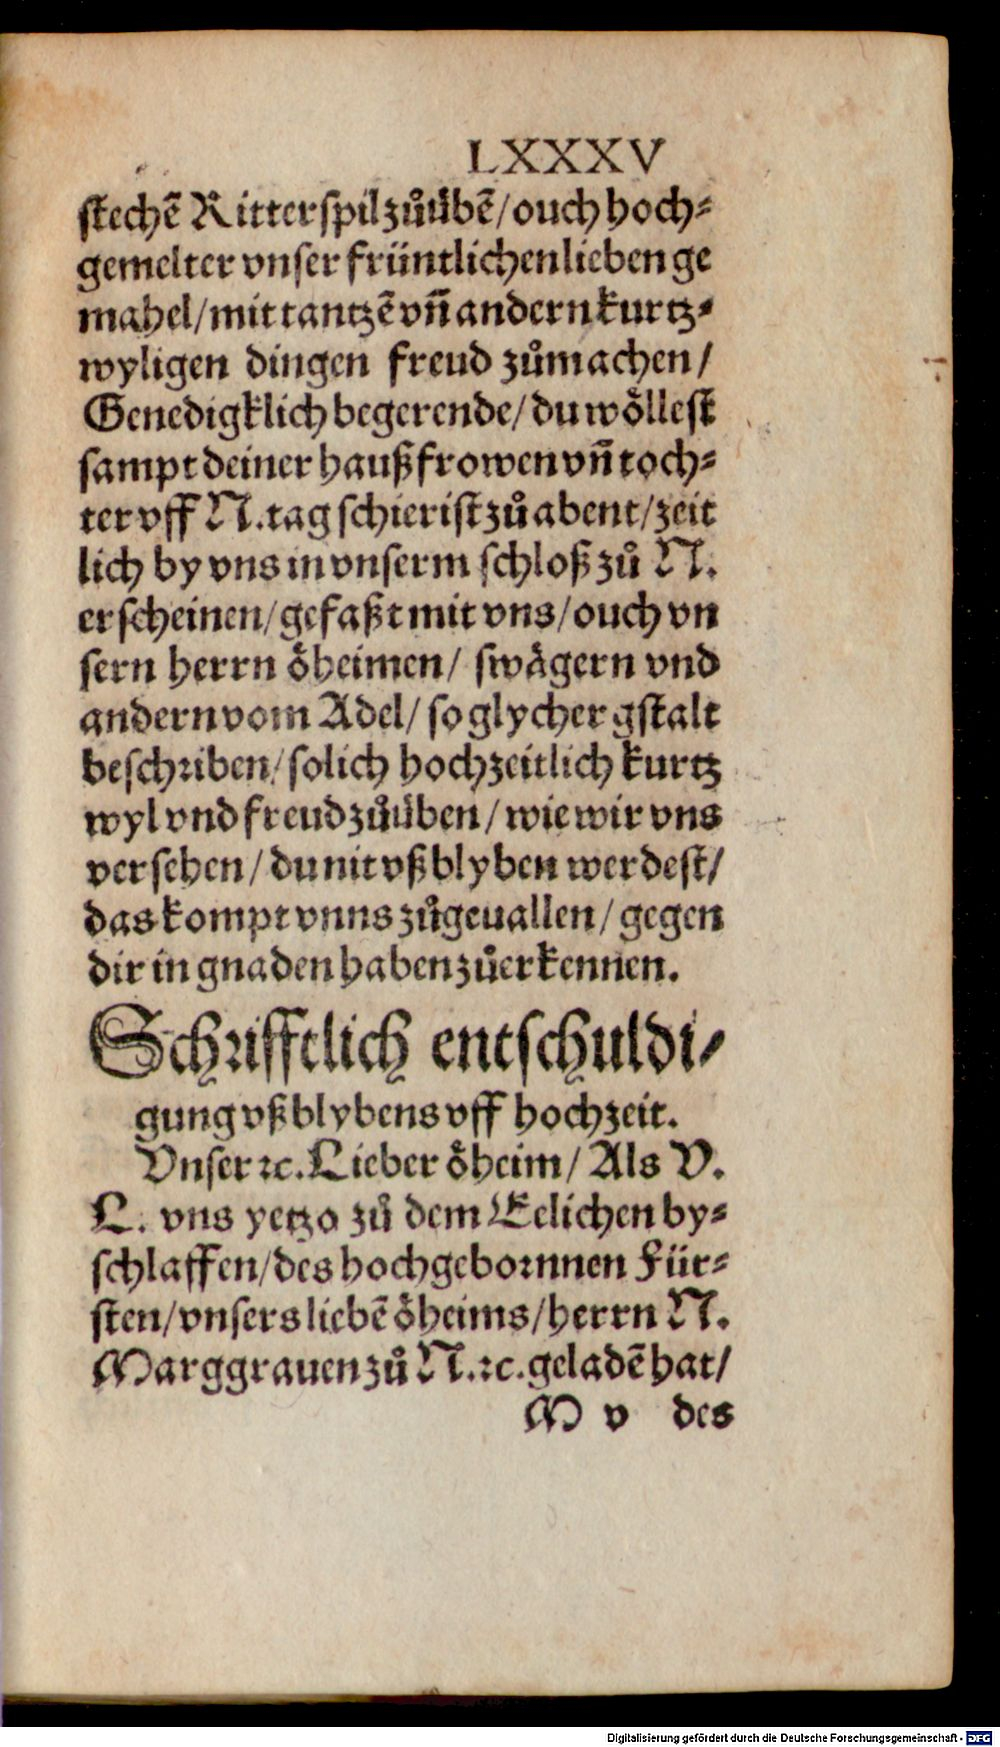 LXXXV
stechẽ Ritterspil zůüben̄/ouch hoch⸗
gemelter vnser früntlichen lieben ge
mahel/mit tantzẽ vñ andern kurtz⸗
wyligen dingen freud zůmachen/
Genedigklich begerende/du wöllest
sampt deiner haußfrowen vñ toch⸗
ter vff N.tag schierist zů abent/zeit
lich by vns in vnserm schloß zů N.
erscheinen/gefaßt mit vns/ouch vn
sern herrn öheimen/ swägern vnd
andern vom Adel/so glycher gstalt
beschriben/solich hochzeitlich kurtz
wyl vnd freud zůüben/wie wir vns
versehen/du nit vßblyben werdest/
das kompt vnns zůgeuallen/gegen
dir in gnaden haben zůerkennen.
Schrifftlich entschuldi⸗
gung vßblybens vff hochzeit.
Vnser ⁊c.Lieber öheim/Als V.
L. vns yetzo zů dem Eelichen by⸗
schlaffen/des hochgebornnen Für⸗
sten/vnsers liebẽ öheims/herrn N.
Marggrauen zů N.⁊c.geladẽ hat/
M v des
Digitalisierung gefördert durch die Deutsche Forschungsgemeinschaft - DFG